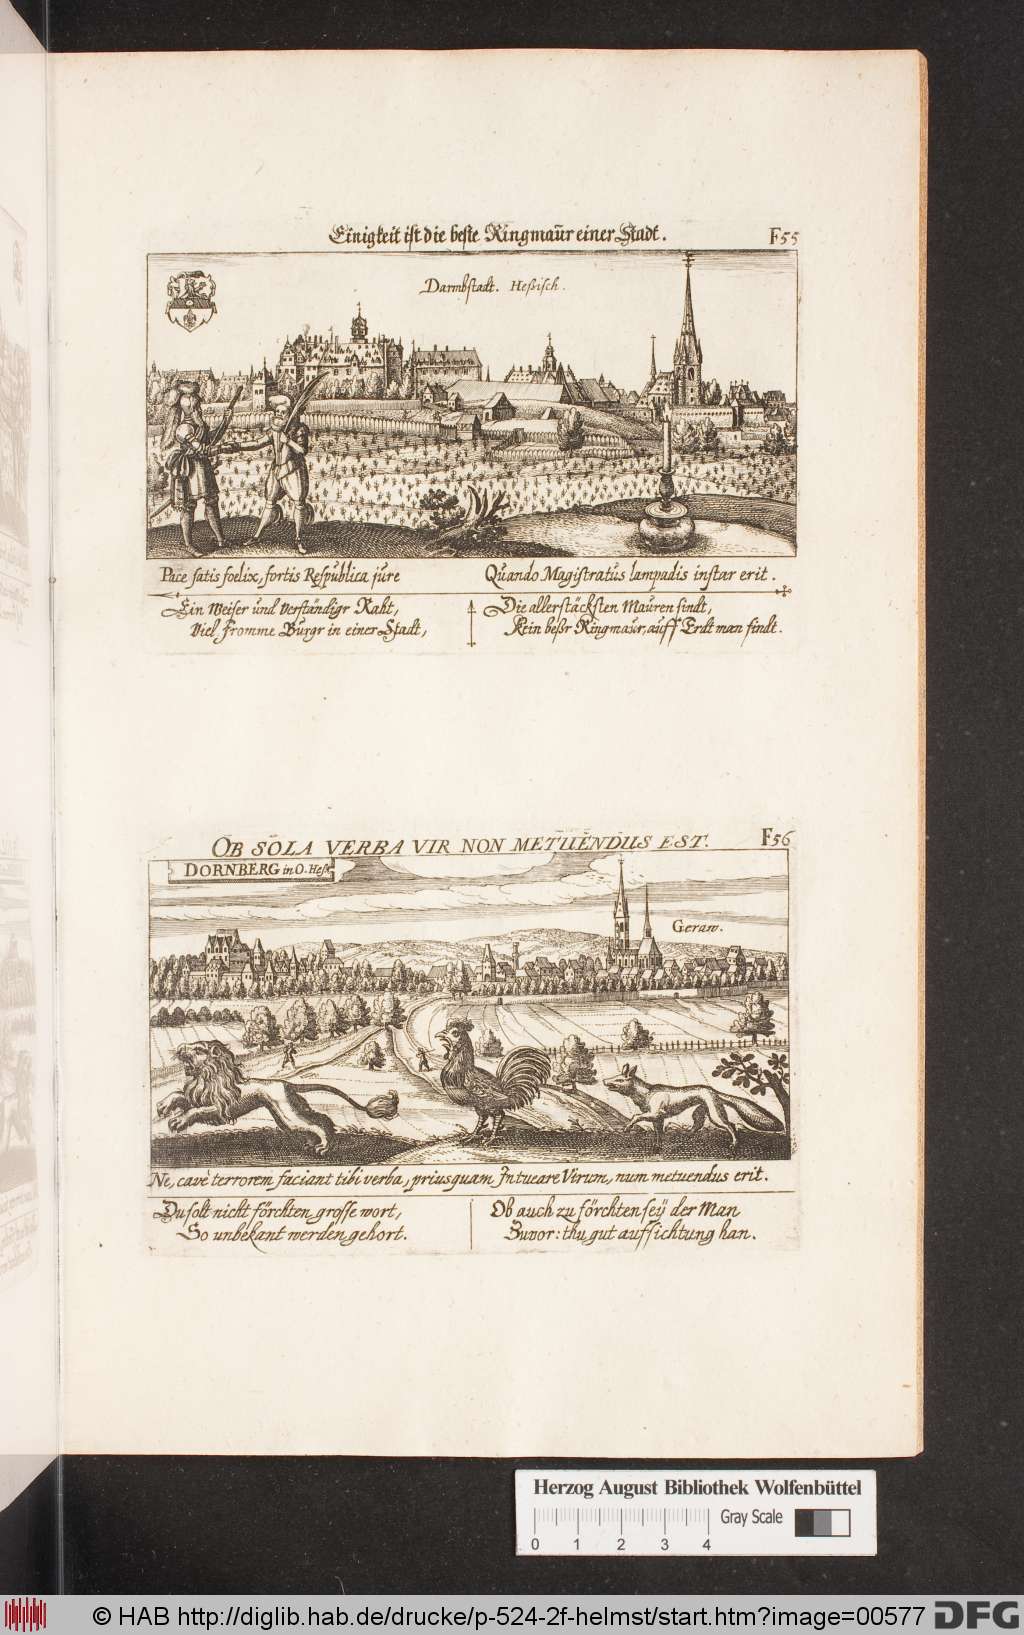 Einigkeit ist die beste Ringmaür einer Stadt.
F55
Darmbstadt. Heßisch.
Pace satis foelix, fortis Respublica jure
Quando Magistratus lampadis instar erit.
Ein Weiser und verständigr Raht,
Viel fromme Burgr in einer Stadt,
Die allerstäcksten Mauren sindt,
Kein beßr Ringmaur, auff Erdt man findt.
OB SOLA VERBA VIR NON METUENDUS EST.
F56
DORNBERG in O. Heß.
Geraw.
Ne, cavè terrorem faciant tibi verba, priusquam Intueare Virum, num metuendus erit.
Du solt nicht förchten grosse wort,
So unbekant werden gehort.
Ob auch zu förchten seÿ der Man
Zuvor: thu gut auffsichtung han.
Herzog August Bibliothek Wolfenbüttel
Gray Scale
0 1 2 3 4
© HAB http://diglib.hab.de/drucke/p-524-2f-helmst/start.htm?image=00577
DFG